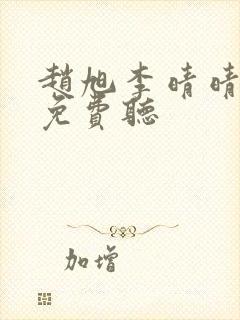 趙旭李晴晴
免費聽
加增